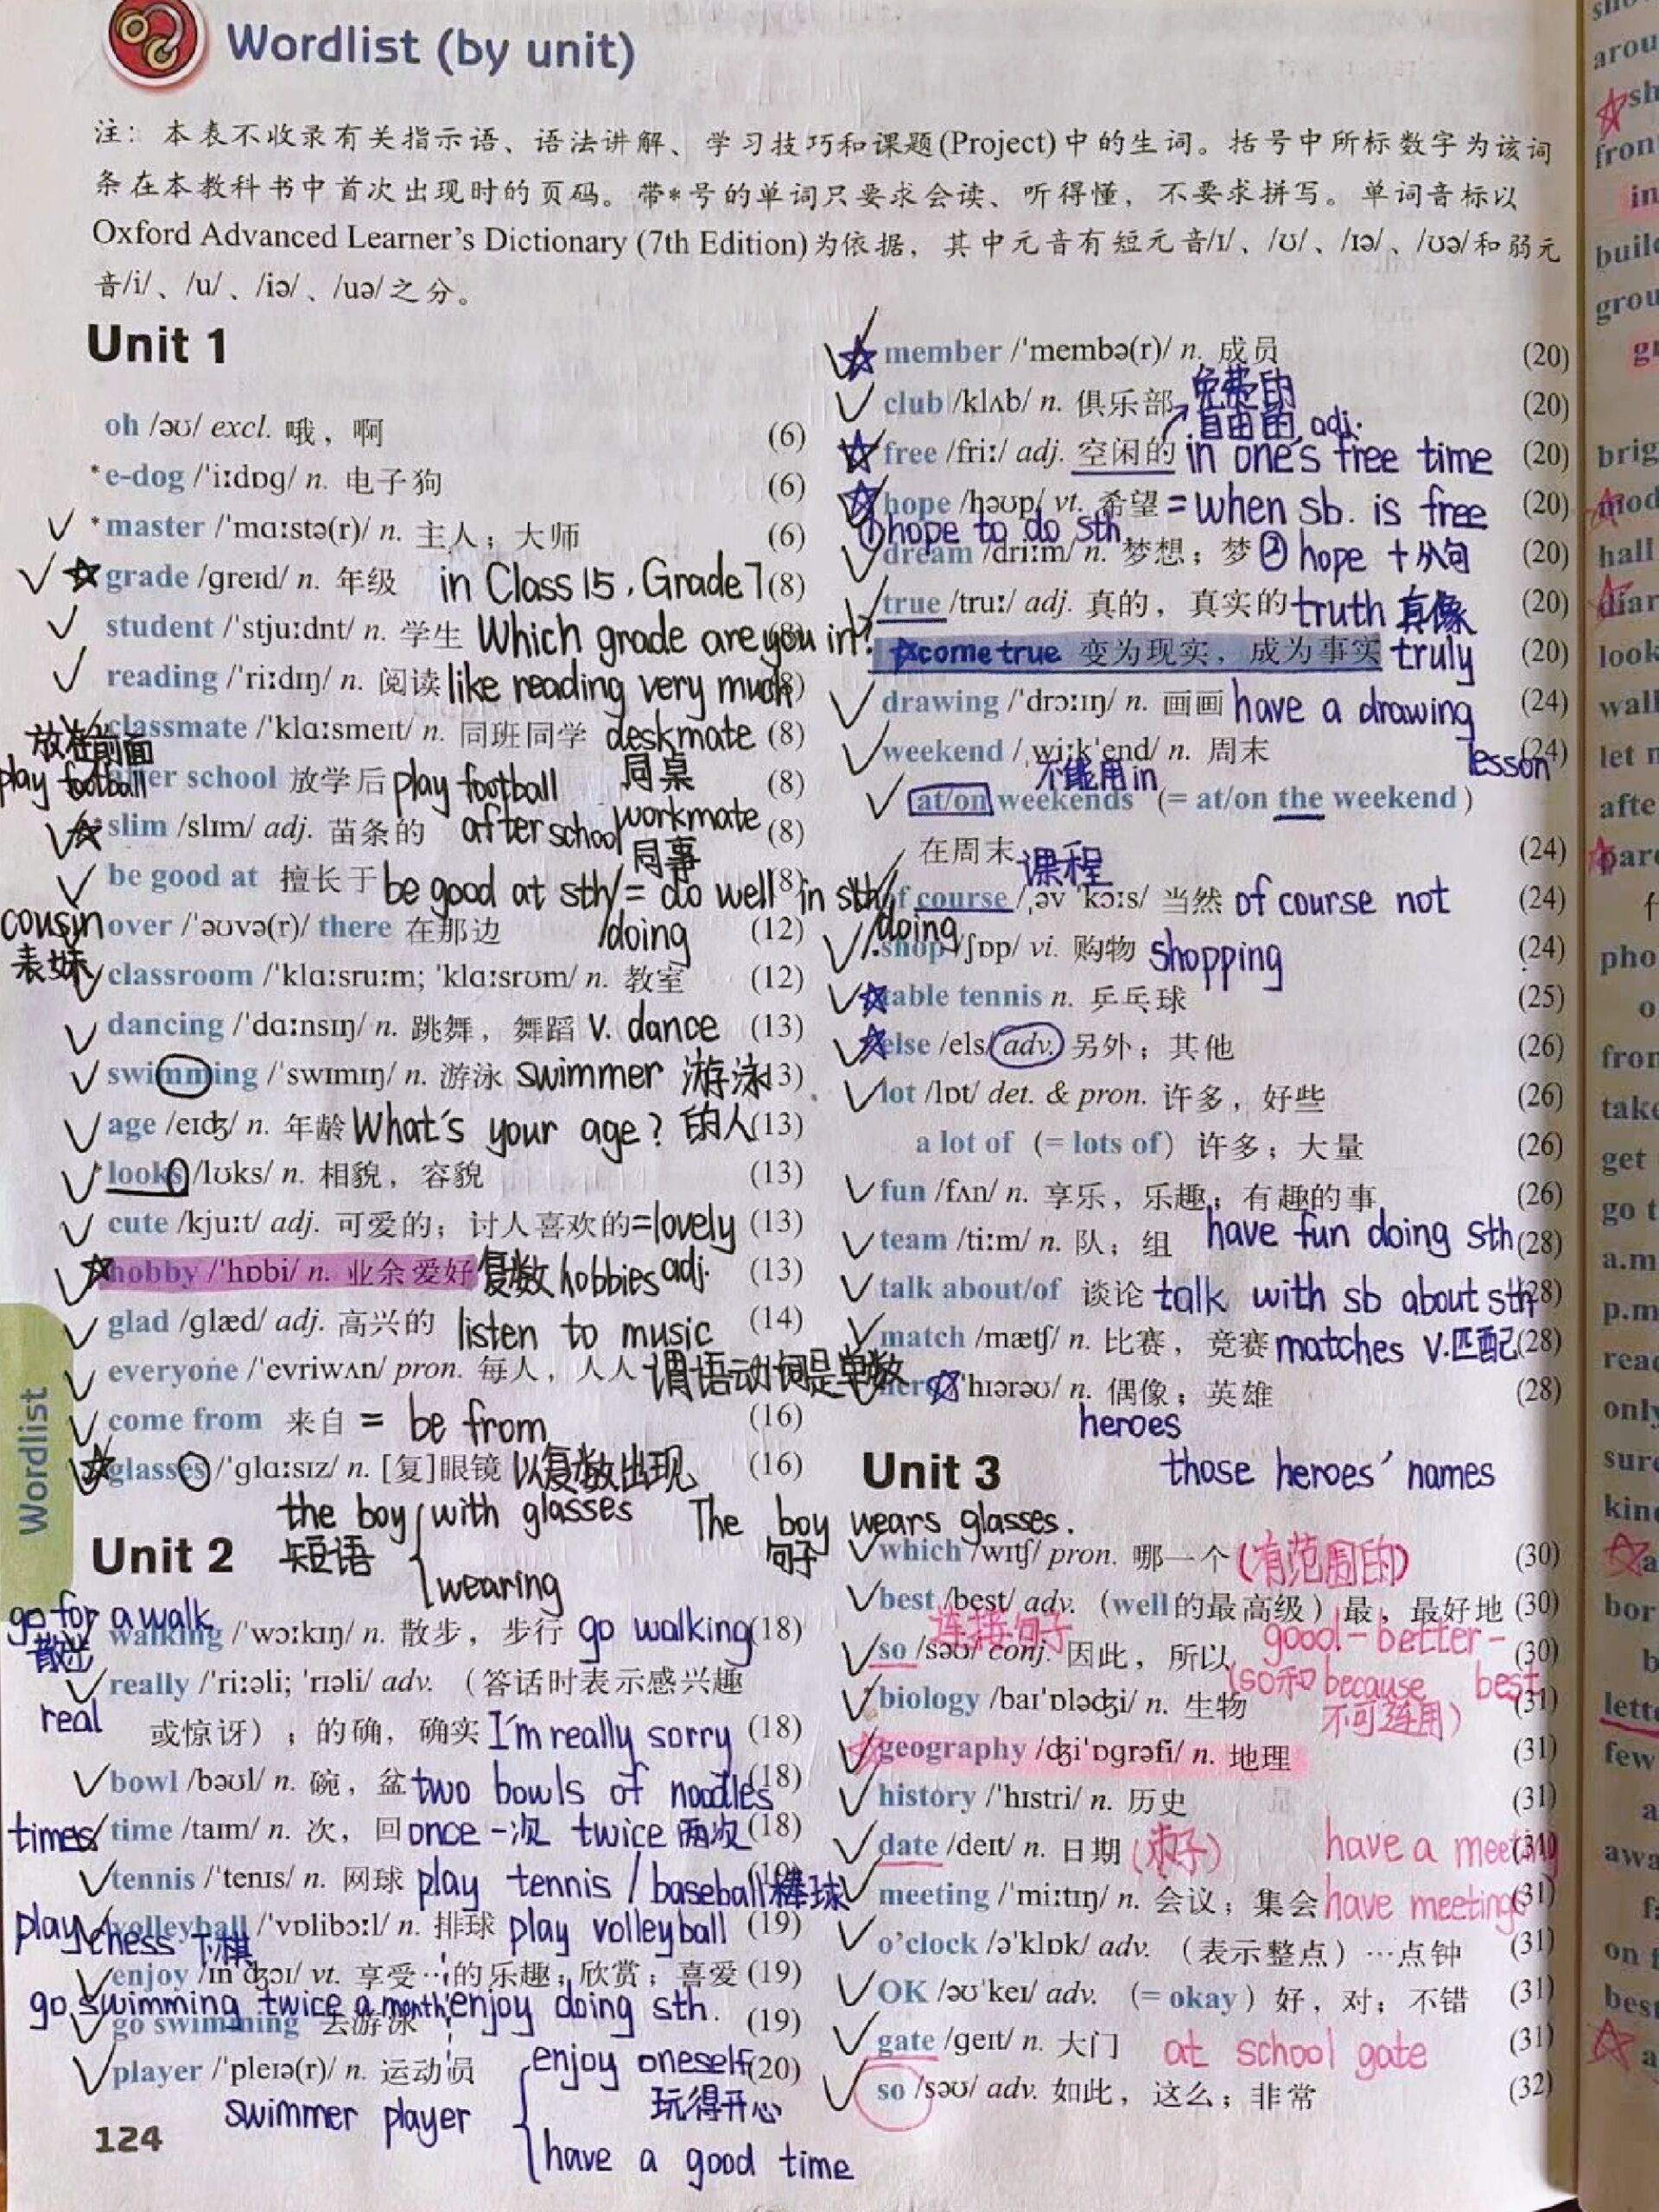 Wordlist (by unit)
注：本表不收录有关指示语、语法讲解、学习技巧和课题(Project)中的生词。括号中所标数字为该词
条在本教科书中首次出现时的页码。带*号的单词只要求会读、听得懂，不要求拼写。单词音标以
Oxford Advanced Learner's Dictionary (7th Edition)为依据，其中元音有短元音/ɪ/、/ʊ/、/ɪə/、/ʊə/和弱元
音/i/、/u/、/iə/、/uə/之分。
Unit 1
oh /əʊ/ excl. 哦，啊 (6)
*e-dog /ˈiːdɒɡ/ n. 电子狗 (6)
*master /ˈmɑːstə(r)/ n. 主人；大师 (6)
grade /ɡreɪd/ n. 年级 in Class 15, Grade 7 (8)
student /ˈstjuːdnt/ n. 学生 Which grade are you in?
reading /ˈriːdɪŋ/ n. 阅读 like reading very much
classmate /ˈklɑːsmeɪt/ n. 同班同学 deskmate (8)
放在前面
同桌
play football
after school 放学后 play football (8)
workmate
同事
*slim /slɪm/ adj. 苗条的 after school (8)
be good at 擅长于 be good at sth/ = do well in sth/
/doing
doing
cousin
表妹
over /ˈəʊvə(r)/ there 在那边 (12)
classroom /ˈklɑːsruːm; ˈklɑːsrʊm/ n. 教室 (12)
dancing /ˈdɑːnsɪŋ/ n. 跳舞，舞蹈 v. dance (13)
swimming /ˈswɪmɪŋ/ n. 游泳 swimmer 游泳 (13)
的人
age /eɪdʒ/ n. 年龄 What's your age? (13)
*looks /lʊks/ n. 相貌，容貌 (13)
cute /kjuːt/ adj. 可爱的；讨人喜欢的 =lovely (13)
adj.
hobby /ˈhɒbi/ n. 业余爱好 复数 hobbies (13)
glad /ɡlæd/ adj. 高兴的 listen to music (14)
everyone /ˈevriwʌn/ pron. 每人，人人 谓语动词是单数
come from 来自 = be from (16)
glasses /ˈɡlɑːsɪz/ n. [复]眼镜 以复数出现 (16)
the boy with glasses
wearing
短语
The boy wears glasses.
句子
Unit 2
go for a walk
散步
walking /ˈwɔːkɪŋ/ n. 散步，步行 go walking (18)
really /ˈriːəli; ˈrɪəli/ adv. （答话时表示感兴趣
real
或惊讶）；的确，确实 I'm really sorry (18)
bowl /bəʊl/ n. 碗，盆 two bowls of noodles (18)
times
time /taɪm/ n. 次，回 once 一次 twice 两次 (18)
tennis /ˈtenɪs/ n. 网球 play tennis / baseball 棒球
play chess 下棋
volleyball /ˈvɒlibɔːl/ n. 排球 play volleyball (19)
enjoy /ɪnˈdʒɔɪ/ vt. 享受…的乐趣；欣赏；喜爱 (19)
go swimming twice a month enjoy doing sth.
go swimming 去游泳 (19)
player /ˈpleɪə(r)/ n. 运动员 (20)
swimmer player
enjoy oneself
玩得开心
have a good time
124
Wordlist
member /ˈmembə(r)/ n. 成员 (20)
club /klʌb/ n. 俱乐部 (20)
免费的
自由的 adj.
free /friː/ adj. 空闲的 in one's free time (20)
hope /həʊp/ vt. 希望 = when sb. is free (20)
①hope to do sth
dream /driːm/ n. 梦想；梦 ② hope + 从句 (20)
true /truː/ adj. 真的，真实的 truth 真像 (20)
come true 变为现实，成为事实 truly (20)
drawing /ˈdrɔːɪŋ/ n. 画画 have a drawing (24)
lesson
weekend /ˌwiːkˈend/ n. 周末 (24)
不能用in
at/on weekends (= at/on the weekend)
在周末 (24)
课程
of course /ˌəv ˈkɔːs/ 当然 of course not (24)
shop /ʃɒp/ vi. 购物 shopping (24)
table tennis n. 乒乓球 (25)
else /els/ adv. 另外；其他 (26)
lot /lɒt/ det. & pron. 许多，好些 (26)
a lot of (= lots of) 许多；大量 (26)
fun /fʌn/ n. 享乐，乐趣；有趣的事 (26)
have fun doing sth
team /tiːm/ n. 队；组 (28)
talk about/of 谈论 talk with sb about sth (28)
match /mætʃ/ n. 比赛，竞赛 matches v.匹配 (28)
hero /ˈhɪərəʊ/ n. 偶像；英雄 (28)
heroes
those heroes' names
Unit 3
which /wɪtʃ/ pron. 哪一个 (有范围的) (30)
best /best/ adv. （well的最高级）最，最好地 (30)
good-better-
best
连接句子
so /səʊ/ conj. 因此，所以 (30)
(so和because
不可连用)
*biology /baɪˈɒlədʒi/ n. 生物 (31)
geography /dʒiˈɒɡrəfi/ n. 地理 (31)
history /ˈhɪstri/ n. 历史 (31)
date /deɪt/ n. 日期 (枣子) (31)
have a meeting
meeting /ˈmiːtɪŋ/ n. 会议；集会 have meetings (31)
o'clock /əˈklɒk/ adv. （表示整点）…点钟 (31)
OK /əʊˈkeɪ/ adv. (= okay) 好，对；不错 (31)
gate /ɡeɪt/ n. 大门 at school gate (31)
so /səʊ/ adv. 如此，这么；非常 (32)
arou
sh
fron
in
build
grou
brig
mod
hall
diar
look
wall
let
afte
pare
pho
o
fron
take
get
go t
a.m
p.m
read
only
sure
kin
a
bor
b
lette
few
a
awa
on f
best
a